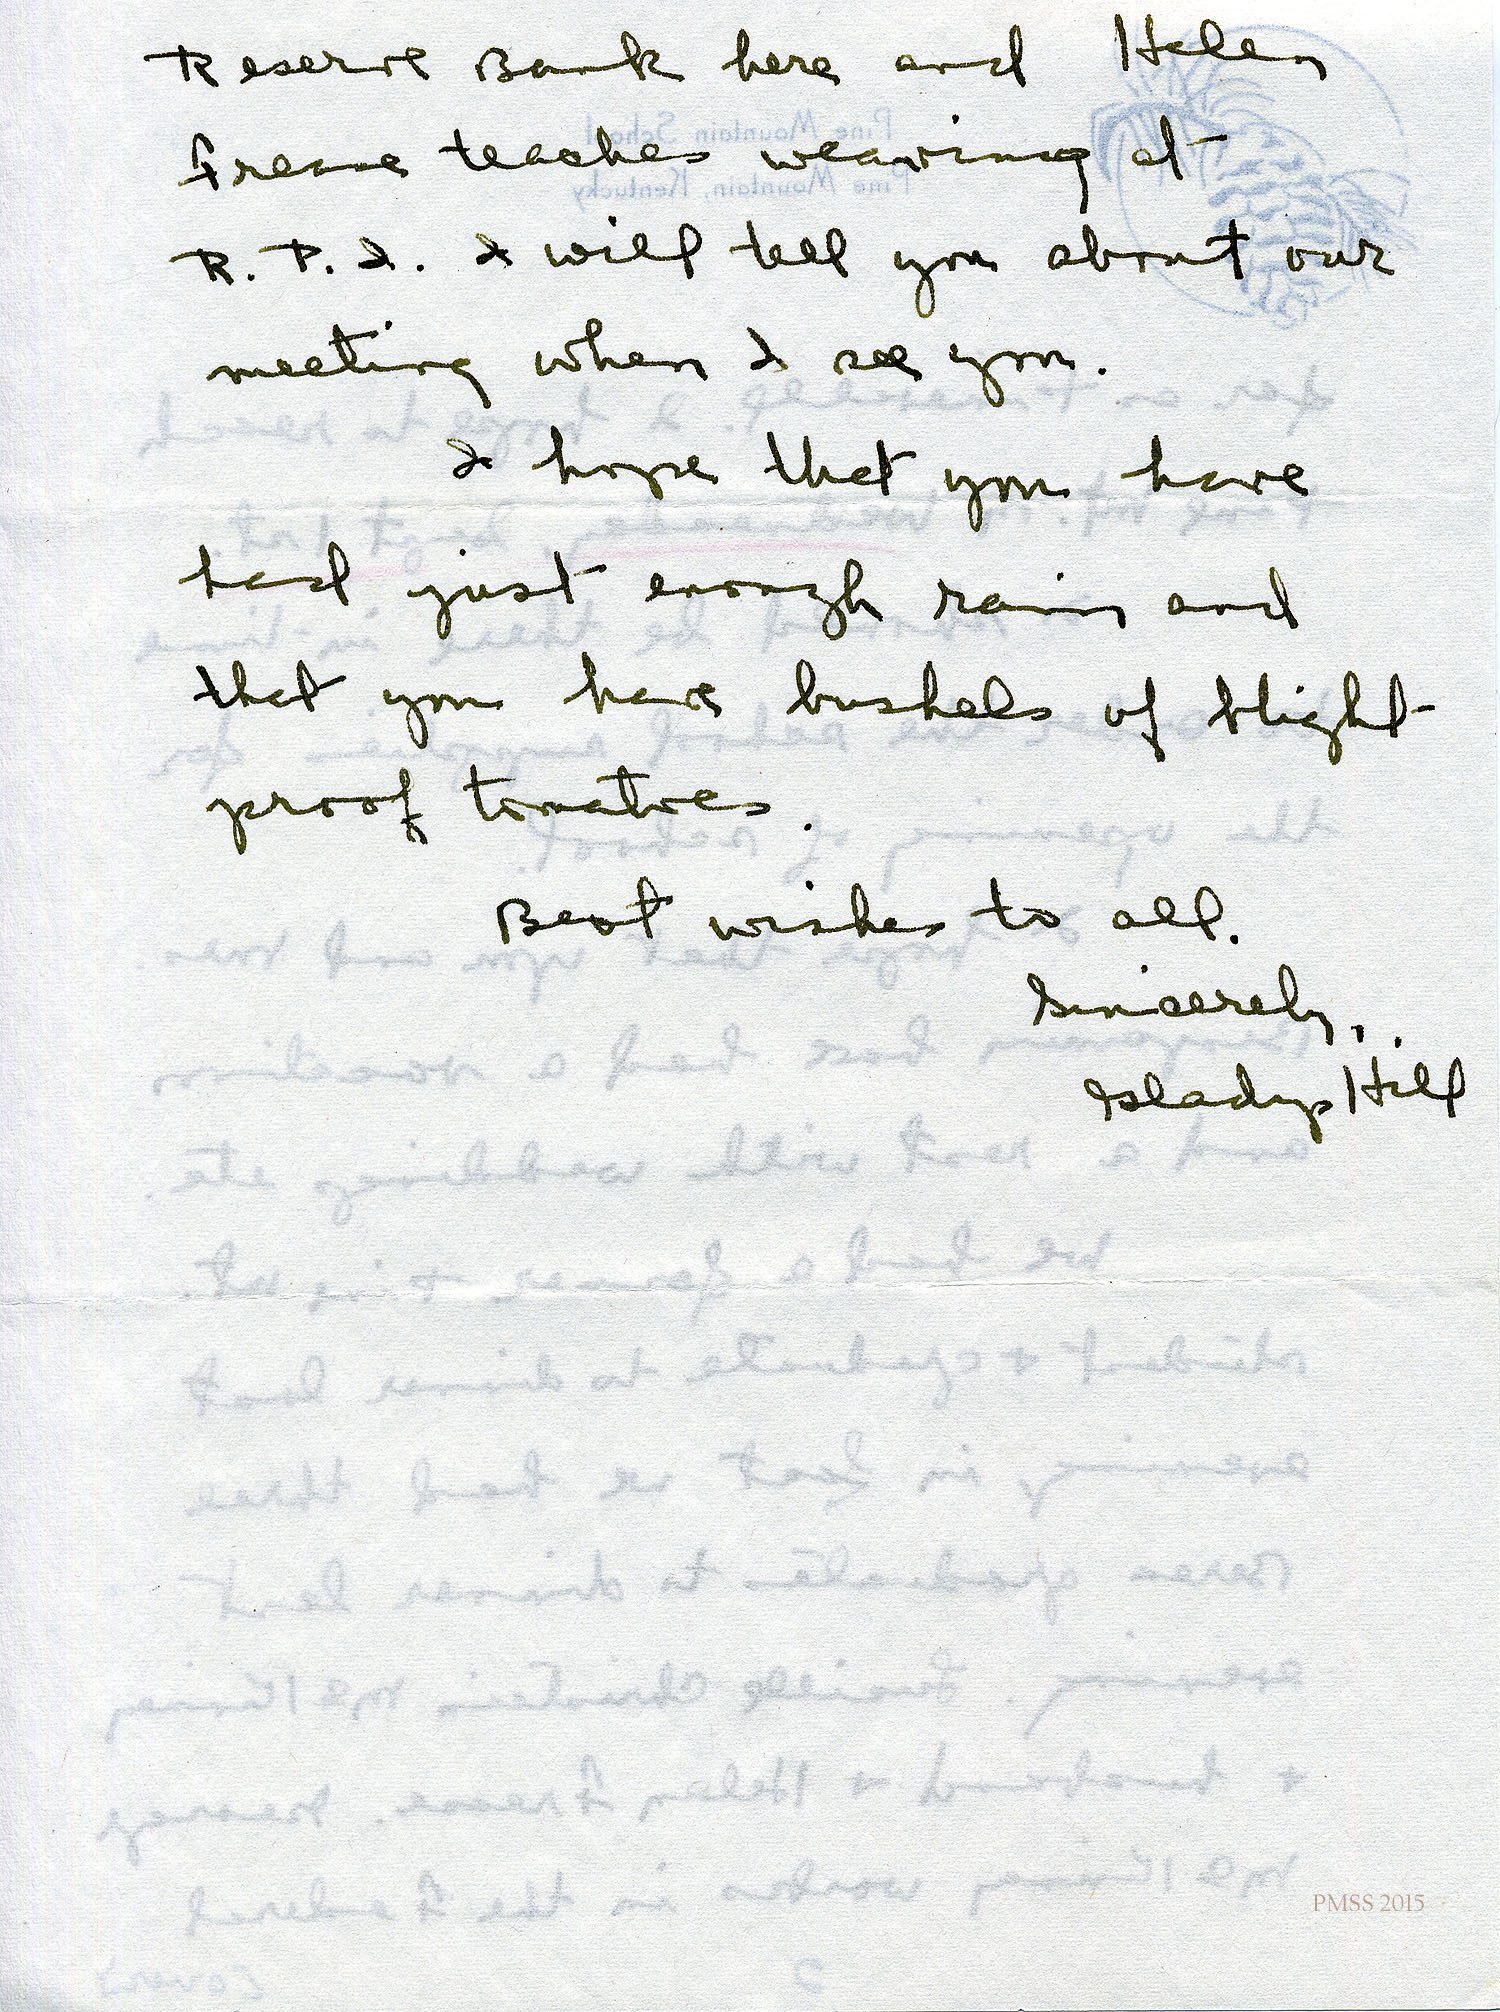 Reserve Bank here and Helen
Frease teaches weaving at
R.P.I. I will tell you about our
meeting when I see you.
I hope that you have
had just enough rain and
that you have bushels of blight-
proof tomatoes.
Best wishes to all.
Sincerely,
Gladys Hill
PMSS 2015